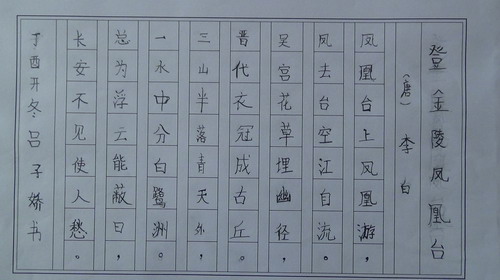 登金陵凤凰台
(唐) 李白
凤凰台上凤凰游,
凤去台空江自流。
吴宫花草埋幽径,
晋代衣冠成古丘。
三山半落青天外,
一水中分白鹭洲。
总为浮云能蔽日,
长安不见使人愁。
丁酉开冬吕子娇书